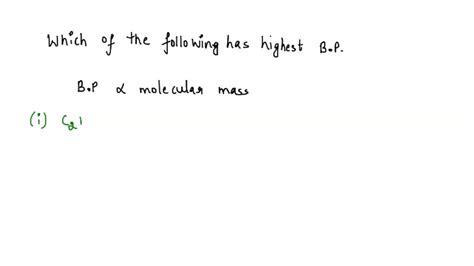 Which of the following has highest B.P.
B.P ∝ molecular mass
(i) C₂